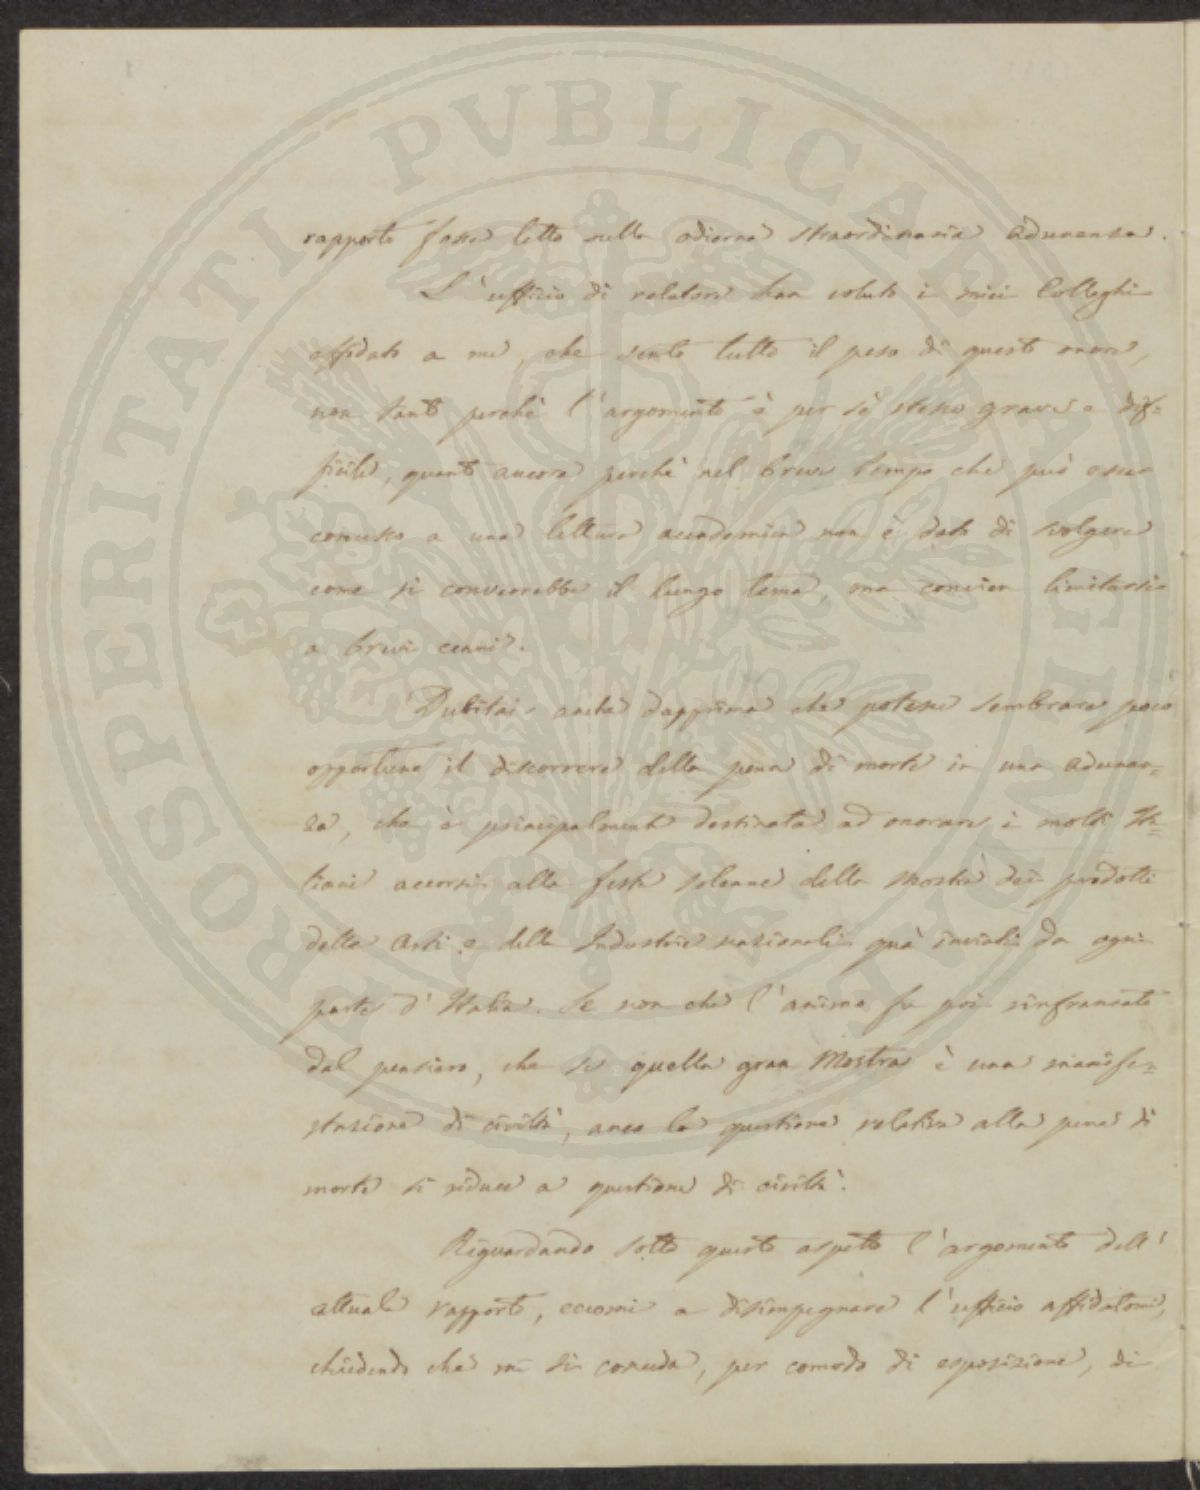 rapporto fosse letto nella odierna straordinaria adunanza.
L'ufficio di relatore han voluto i miei Colleghi
affidato a me, che sento tutto il peso di questo onore,
non tanto perchè l'argomento è per sè stesso grave e dif=
ficile, quanto ancora perchè nel breve tempo che può esser
concesso a una lettura accademica non è dato di svolgere
come si converrebbe il lungo tema, ma convien limitarsi
a brevi cenni.
Dubitai anche dapprima che potesse sembrare poco
opportuno il discorrere della pena di morte in una adunan=
za, che è principalmente destinata ad onorare i molti Ita=
liani accorsi alla festa solenne della mostra dei prodotti
delle Arti e delle Industrie nazionali quà inviati da ogni
parte d'Italia. Se non che l'animo fu poi rinfrancato
dal pensiero, che se quella gran Mostra è una manife=
stazione di civiltà, anco la questione relativa alla pena di
morte si riduce a questione di civiltà.
Riguardando sotto questo aspetto l'argomento dell'
attuale rapporto, eccomi a disimpegnare l'ufficio affidatomi,
chiedendo che mi si conceda, per comodo di esposizione, di
PROSPERITATI PVBLICAE AVGENDAE